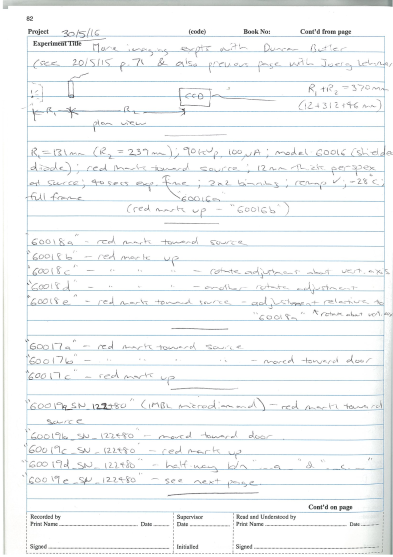 82
Project 30/5/16 (code) Book No: Cont'd from page
Experiment Title More imaging expts with Duncan Butler
(see 20/5/15 p.71 & also previous page with Joerg Lehmann
CCD
R₁ + R₂ = 370 mm
(12+312+46 mm)
R₁ R₂
plan view
R₁=131mm (R₂ = 239 mm); 90 kVp, 100 µA; model 60016 (shielded
diode); red mark toward source; 12mm thick perspex
at source; 40 secs exp. time; 2x2 binning; remap ✓; -28°C;
full frame "60016a"
(red mark up - "60016b")
"60018a" - red mark toward source
"60018b" - red mark up
"60018c" - " " " - rotate adjustment about vert. axis
"60018d" - " " " - another rotate adjustment
"60018e" - red mark toward source - adjustment relative to
"60018a" * rotate about vert. ax
"60017a" - red mark toward source
"60017b" - " " " " - moved toward door
"60017c" - red mark up
"60019a_SN_122480" (IMBL microdiamond) - red mark toward
source
"60019b_SN_122480" - moved toward door
"60019c_SN_122480" - red mark up
"60019d_SN_122480" - half way b/n "...a..." & "...c..."
"60019e_SN_122480" - see next page
Cont'd on page
Recorded by Supervisor Read and Understood by
Print Name Date Date Print Name Date
Signed Initialled Signed